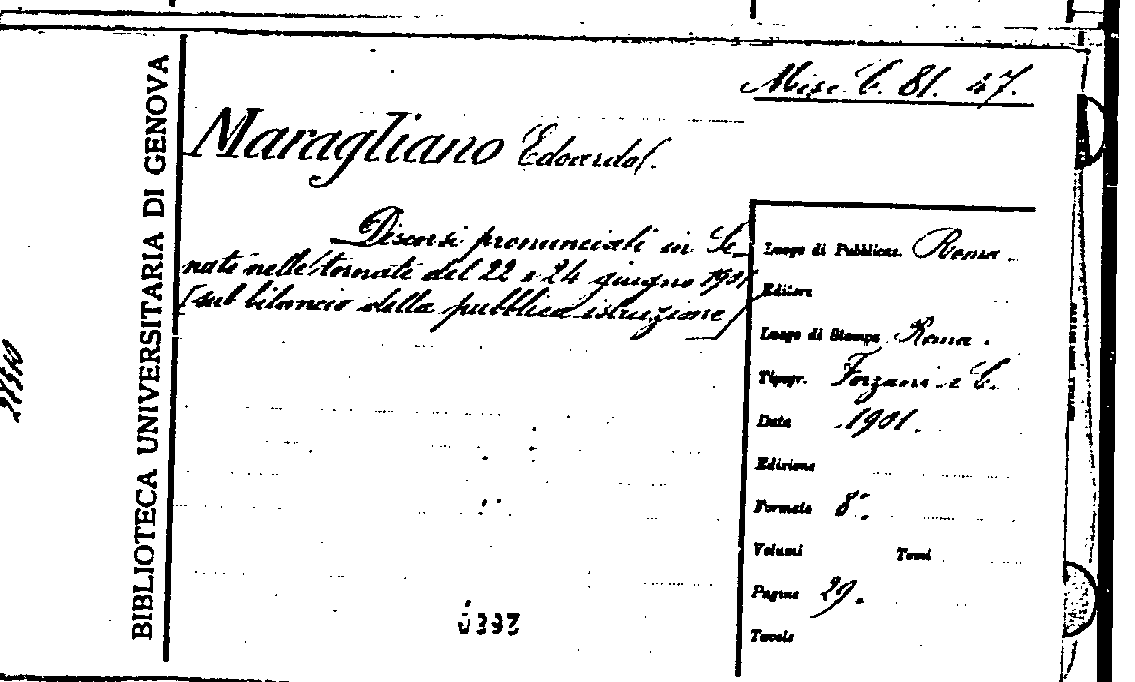 BIBLIOTECA UNIVERSITARIA DI GENOVA
Misc. C. 81. 47.
Maragliano Edoardo.
Discorsi pronunciati in Se-
nato nelle tornate del 22 e 24 giugno 1901
(sul bilancio della pubblica istruzione)
Luogo di Pubblicaz. Roma
Editore
Luogo di Stampa Roma.
Tipogr. Forzani e C.
Data 1901.
Edizione
Formato 8°.
Volumi Tomi
Pagine 29.
Tavole